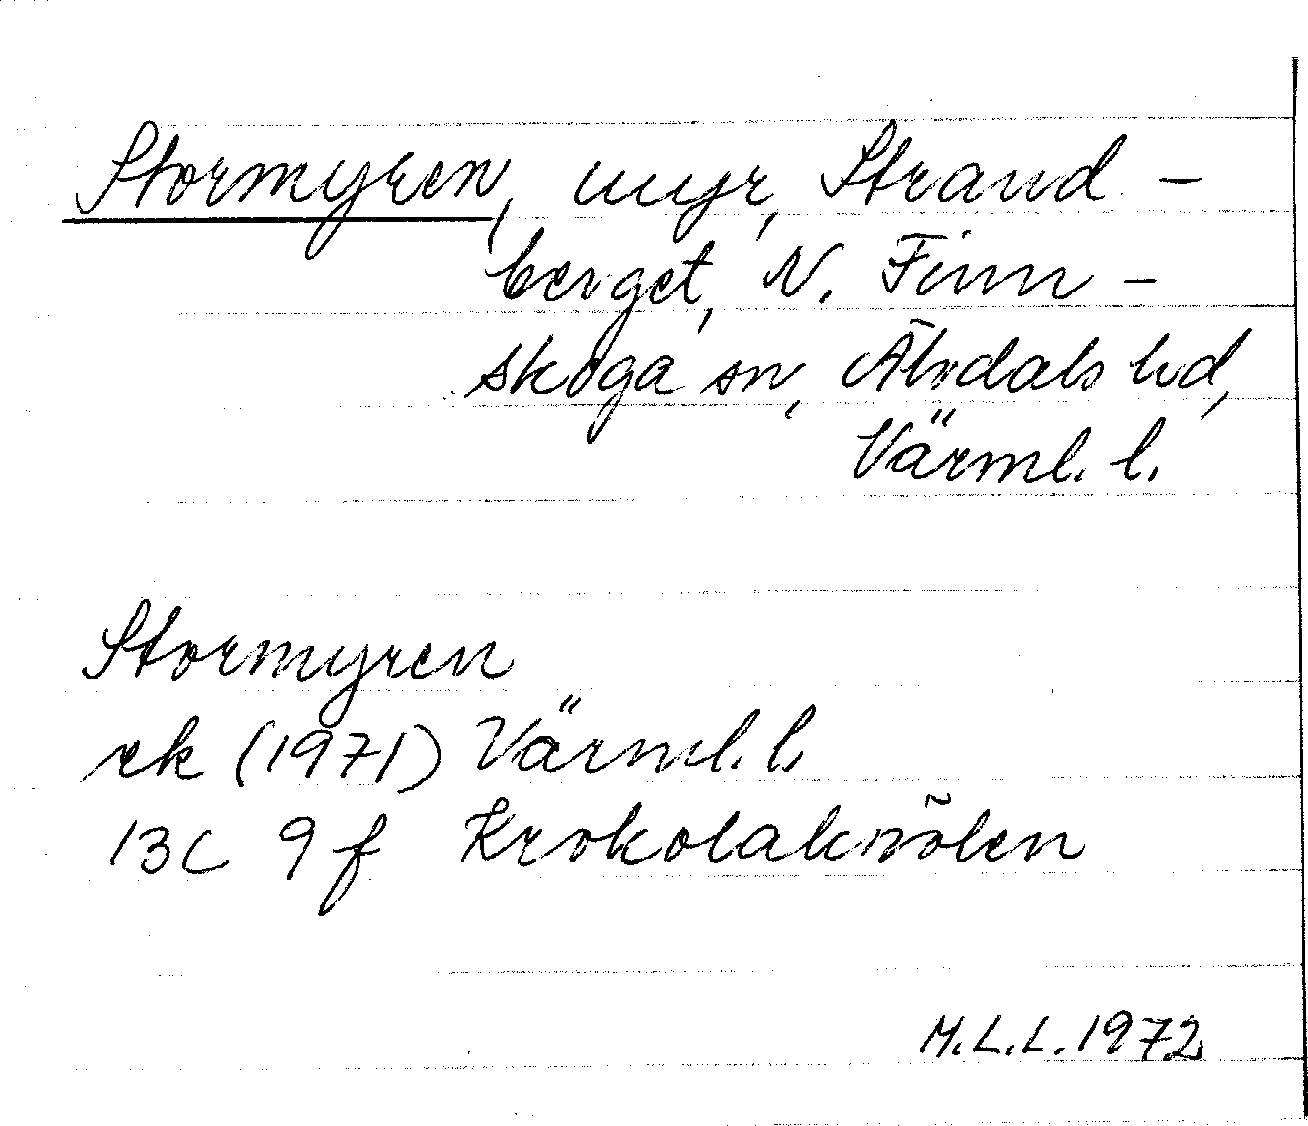 Stormyren, myr, Strand-
berget, N. Finn-
skoga sn, Älvdals hd,
Värml. l.
Stormyren
ek (1971) Värml. l.
13C 9f Krokolaknölen
M.L.L. 1972